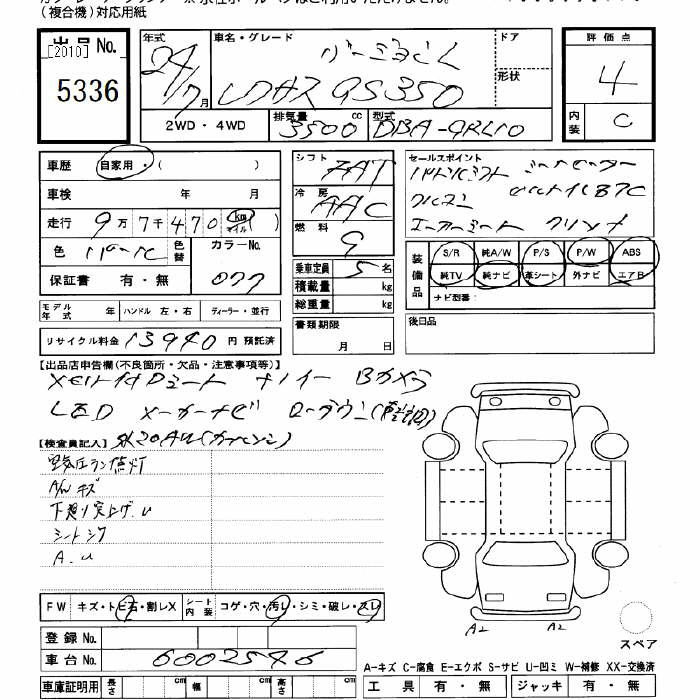 (複合機)対応用紙
出品No. 年式 車名・グレード ドア 評価点
[2010] 24 バージョンL 4
5336 7月 レクサス GS350 形状
2WD・4WD 排気量 cc 型式 内装 C
3500 DBA-GRL10
車歴 自家用・( ) シフト 7AT セールスポイント
パドルシフト シートヒーター
車検 年 月 冷房 AAC
走行 9万7千470 km マイル 燃料 G エアーシート クリソナ
色 パール 色替 カラーNo. 077 装備品 S/R 純A/W P/S P/W ABS
保証書 有・無 乗車定員 5名 純TV 純ナビ 革シート 外ナビ エアB
積載量 kg ナビ型番:
モデル年式 年 ハンドル 左・右 ディーラー・並行 総重量 kg
リサイクル料金 13940 円 預託済 書類期限 月 日 後日品
【出品店申告欄(不良箇所・欠品・注意事項等)】
ナノイー Bカメラ
LED メーカーナビ ローダウン
【検査員記入】 社20AW
空気圧ランプ点灯
A/Wキズ
下廻り突上げ.U
シートシワ
A.U
FW キズ・トビ石・割レX シート内装 コゲ・穴・汚レ・シミ・破レ・スレ
A2 A2
登録No.
スペア
車台No. 6002546
A=キズ C=腐食 E=エクボ S=サビ U=凹ミ W=補修 XX=交換済
車庫証明用 長さ cm 幅 cm 高さ cm 工具 有・無 ジャッキ 有・無